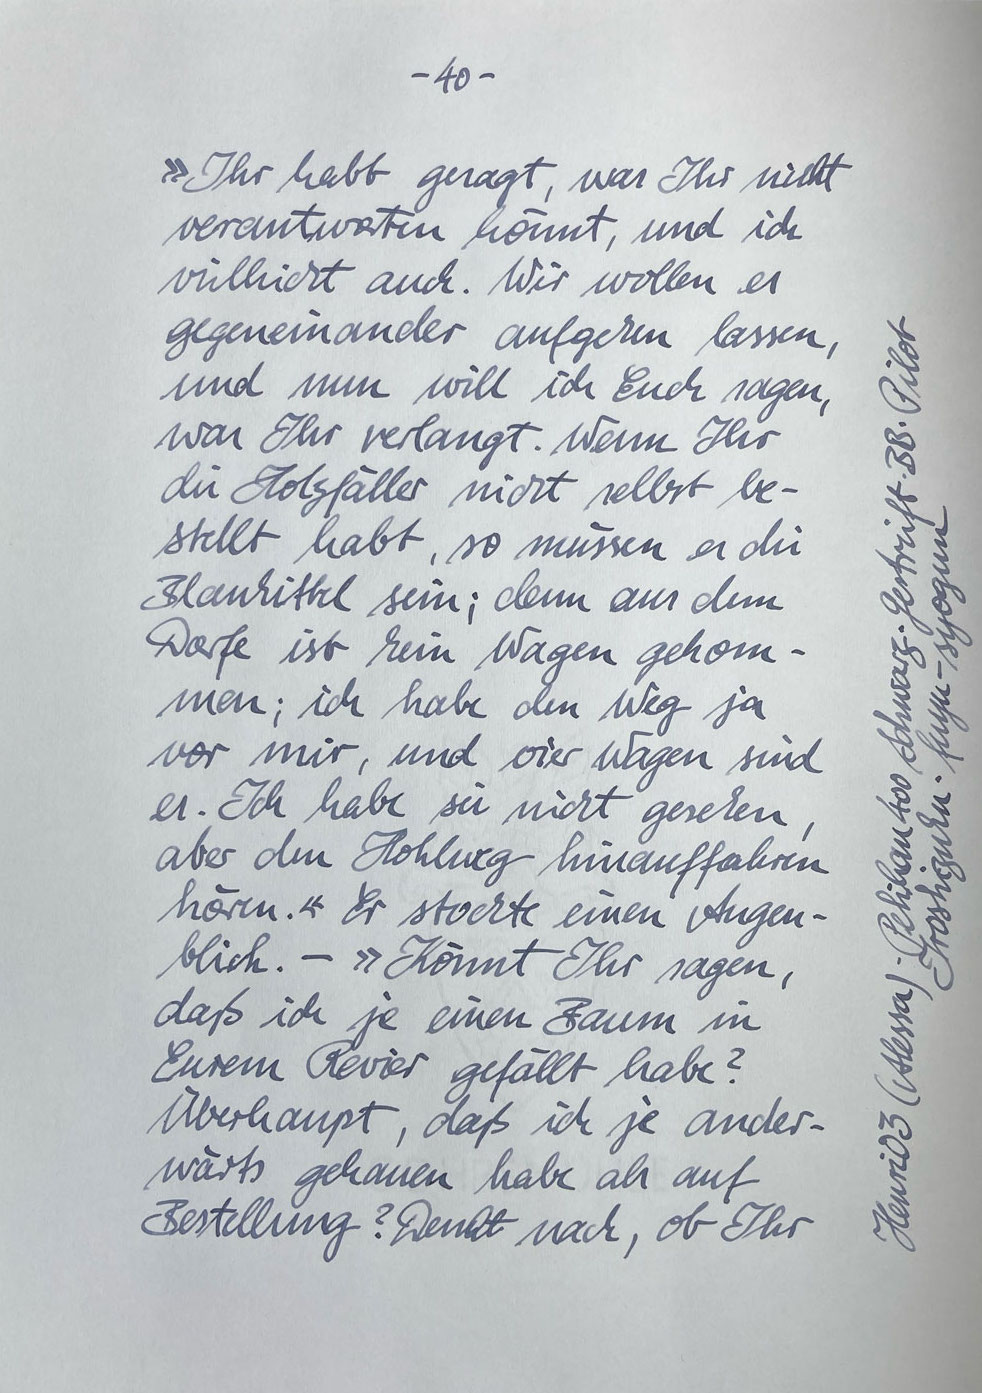 -40-
»Ihr habt gesagt, was Ihr nicht
verantworten könnt, und ich
vielleicht auch. Wir wollen es
gegeneinander aufgehen lassen,
und nun will ich Euch sagen,
was Ihr verlangt. Wenn Ihr
die Holzfäller nicht selbst be-
stellt habt, so müssen es die
Blaukittel sein; denn aus dem
Dorfe ist kein Wagen gekom-
men; ich habe den Weg ja
vor mir, und vier Wagen sind
es. Ich habe sie nicht gesehen,
aber den Hohlweg hinauffahren
hören.« Er stockte einen Augen-
blick. – »Könnt Ihr sagen,
daß ich je einen Baum in
Eurem Revier gefällt habe?
Überhaupt, daß ich je ander-
wärts gehauen habe als auf
Bestellung? Denkt nach, ob Ihr
HenriD3 (Alessa) · Pelikan 400 Schwarz · Gertrift · BB · Pilot
Iroshizuku · fuyu-syogun